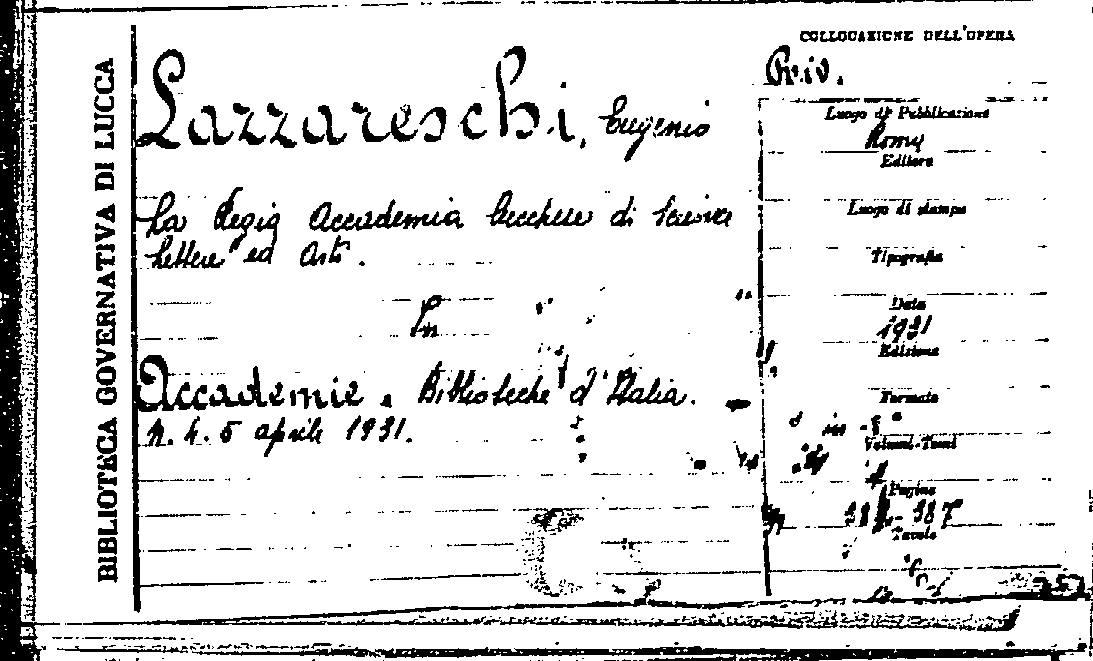 BIBLIOTECA GOVERNATIVA DI LUCCA
COLLOCAZIONE DELL'OPERA
Priv.
Lazzareschi, Eugenio
La Regia Accademia Lucchese di Scienze
Lettere ed Arti.
In
Accademie e Biblioteche d'Italia.
N. 4. 5 aprile 1931.
Luogo di Pubblicazione
Roma
Editore
Luogo di stampa
Tipografia
Data
1931
Edizione
Formato
in - 8°
Volumi-Tomi
Pagine
387
Tavole